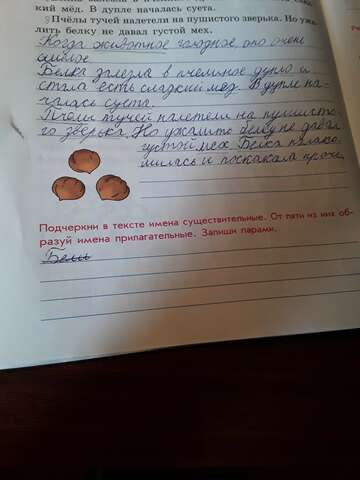 кий мёд. В дупле началась суета.
Пчёлы тучей налетели на пушистого зверька. Но ужа-
лить белку не давал густой мех.
Когда животное голодное оно очень
сильное
Белка залезла в пчелиное дупло и
стала есть сладкий мёд. В дупле на-
чалась суета.
Пчёлы тучей налетели на пушисто-
го зверька. Но ужалить белку не давал
густой мех. Белка полако-
милась и поскакала прочь.
Подчеркни в тексте имена существительные. От пяти из них об-
разуй имена прилагательные. Запиши парами.